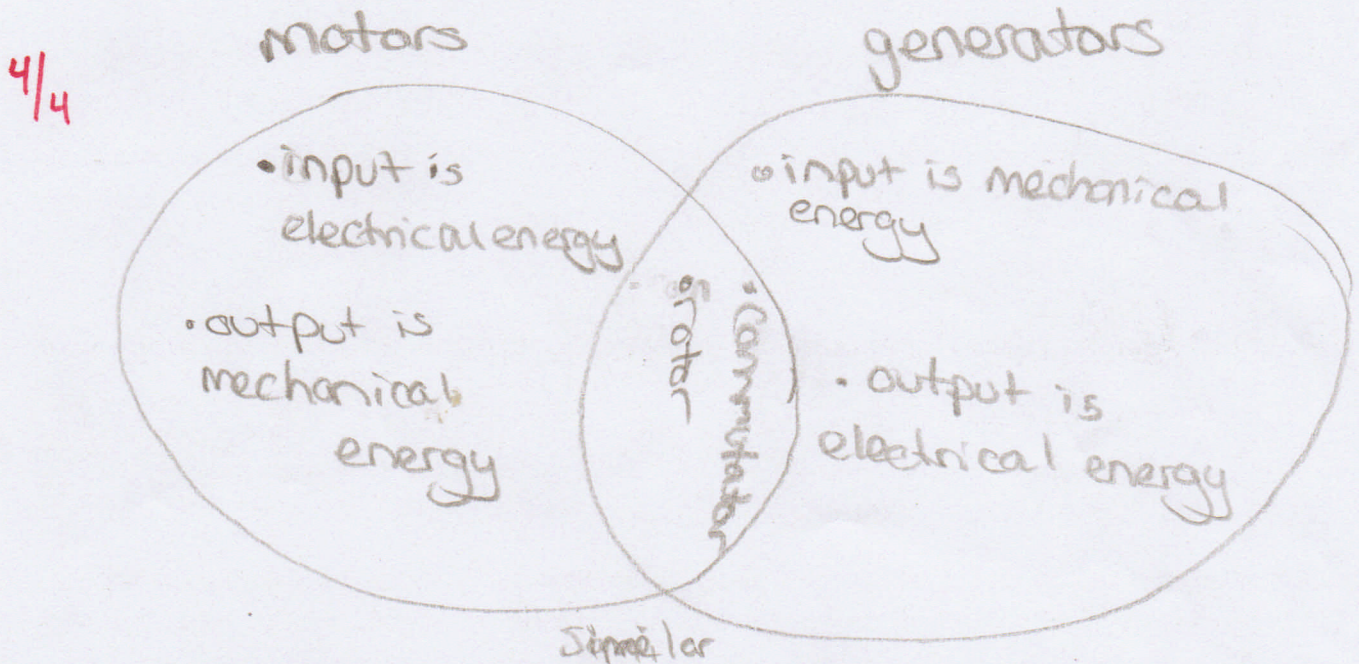 4/4
motors
generators
• input is
electrical energy
• output is
mechanical
energy
• rotor
• Commutator
• input is mechanical
energy
• output is
electrical energy
Similar